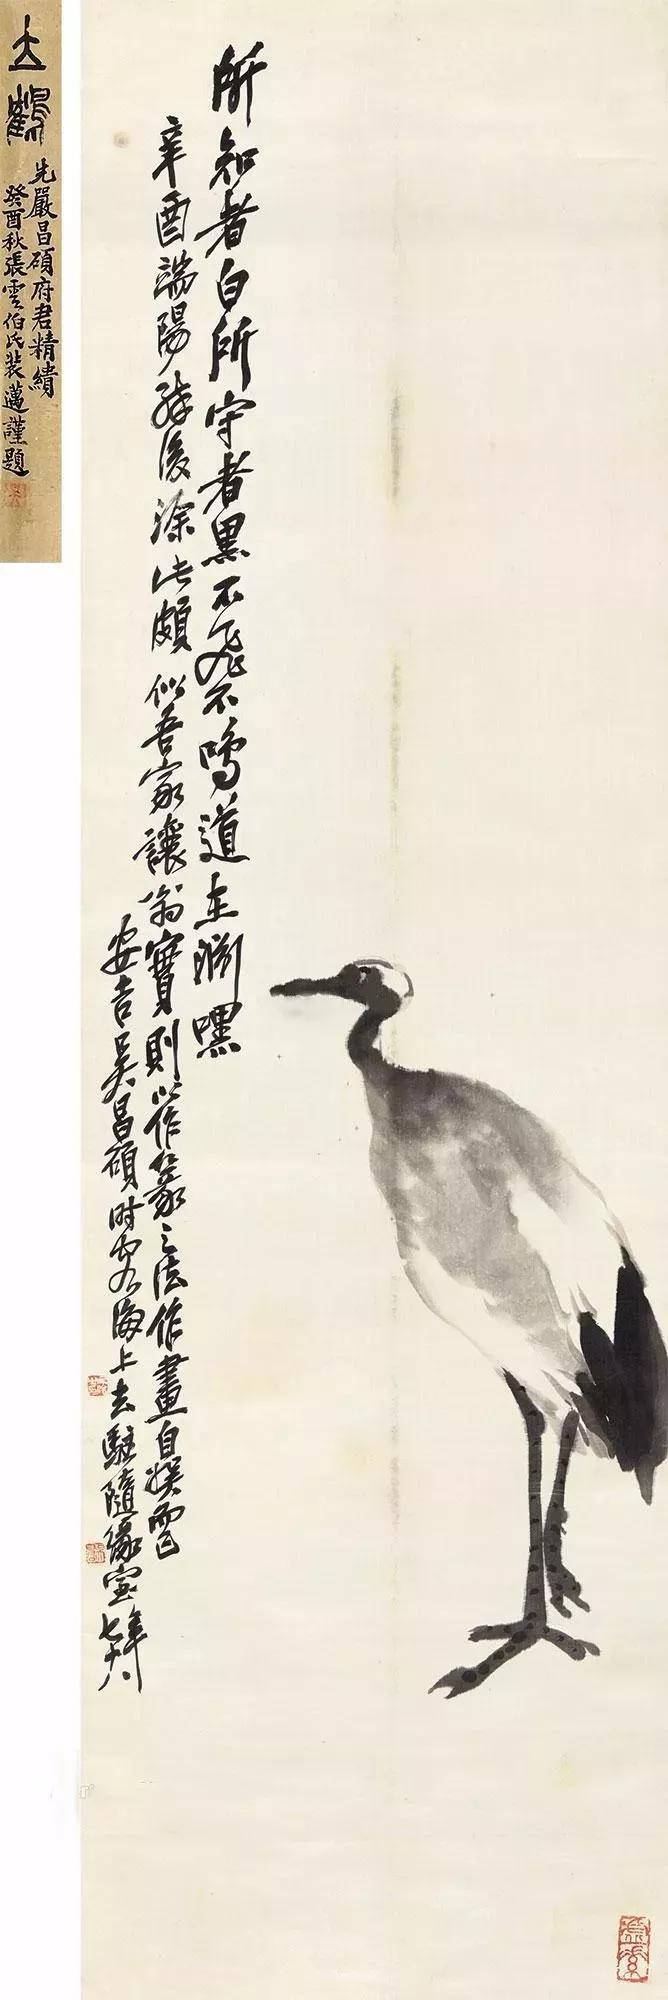 立鶴
先嚴昌碩府君精繢
癸酉秋張雲伯氏裝邁謹題
所知者白所守者黑不飛不鳴道在淵嘿
辛酉端陽醉後涂此頗似吾家讓翁實則以作篆之法作畫自娛而已
安吉吳昌碩時客海上去駐隨緣室年七十八